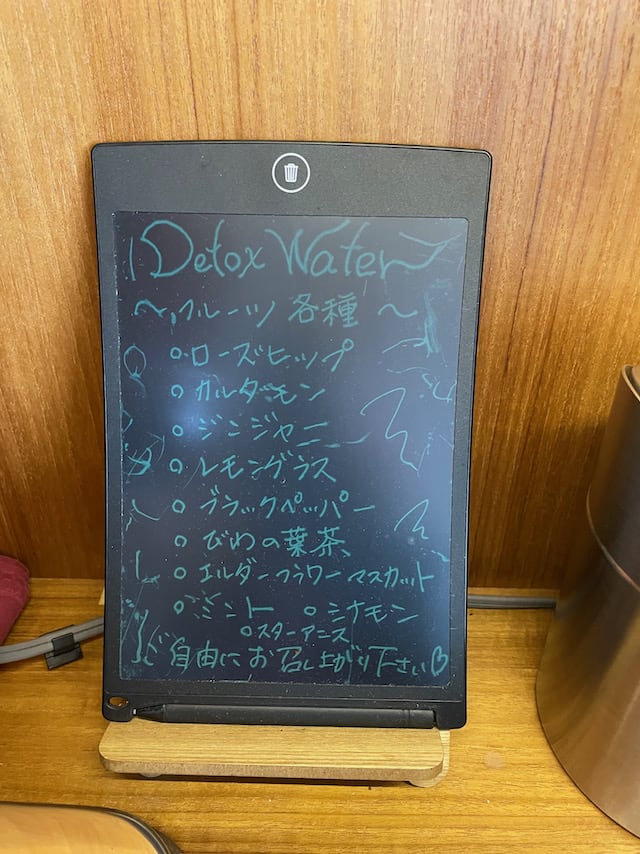 Detox Water
～フルーツ各種～
○ローズヒップ
○カルダモン
○ジンジャー
○レモングラス
○ブラックペッパー
○びわの葉茶
○エルダーフラワーマスカット
○ミント ○シナモン
○スターアニス
ご自由にお召し上がり下さい♡